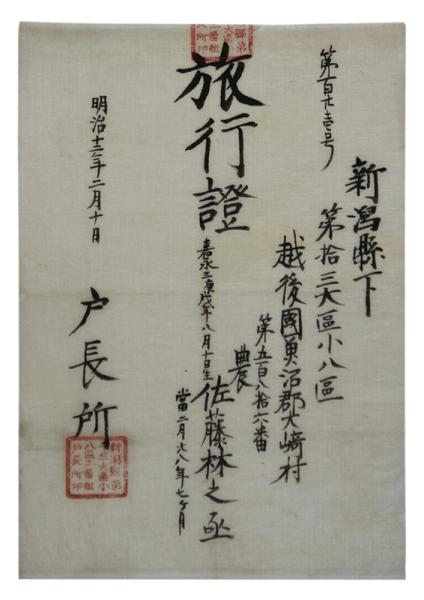 第百壱号
新潟縣下
第拾三大區小八區
越後國魚沼郡大﨑村
第五百八拾六番
農
佐藤林之亟
旅行證
嘉永三庚戌年八月十日生
當二月廿八年七ヶ月
明治十二年二月十日
戸長所
新潟縣第
十三大區小
戸長所印